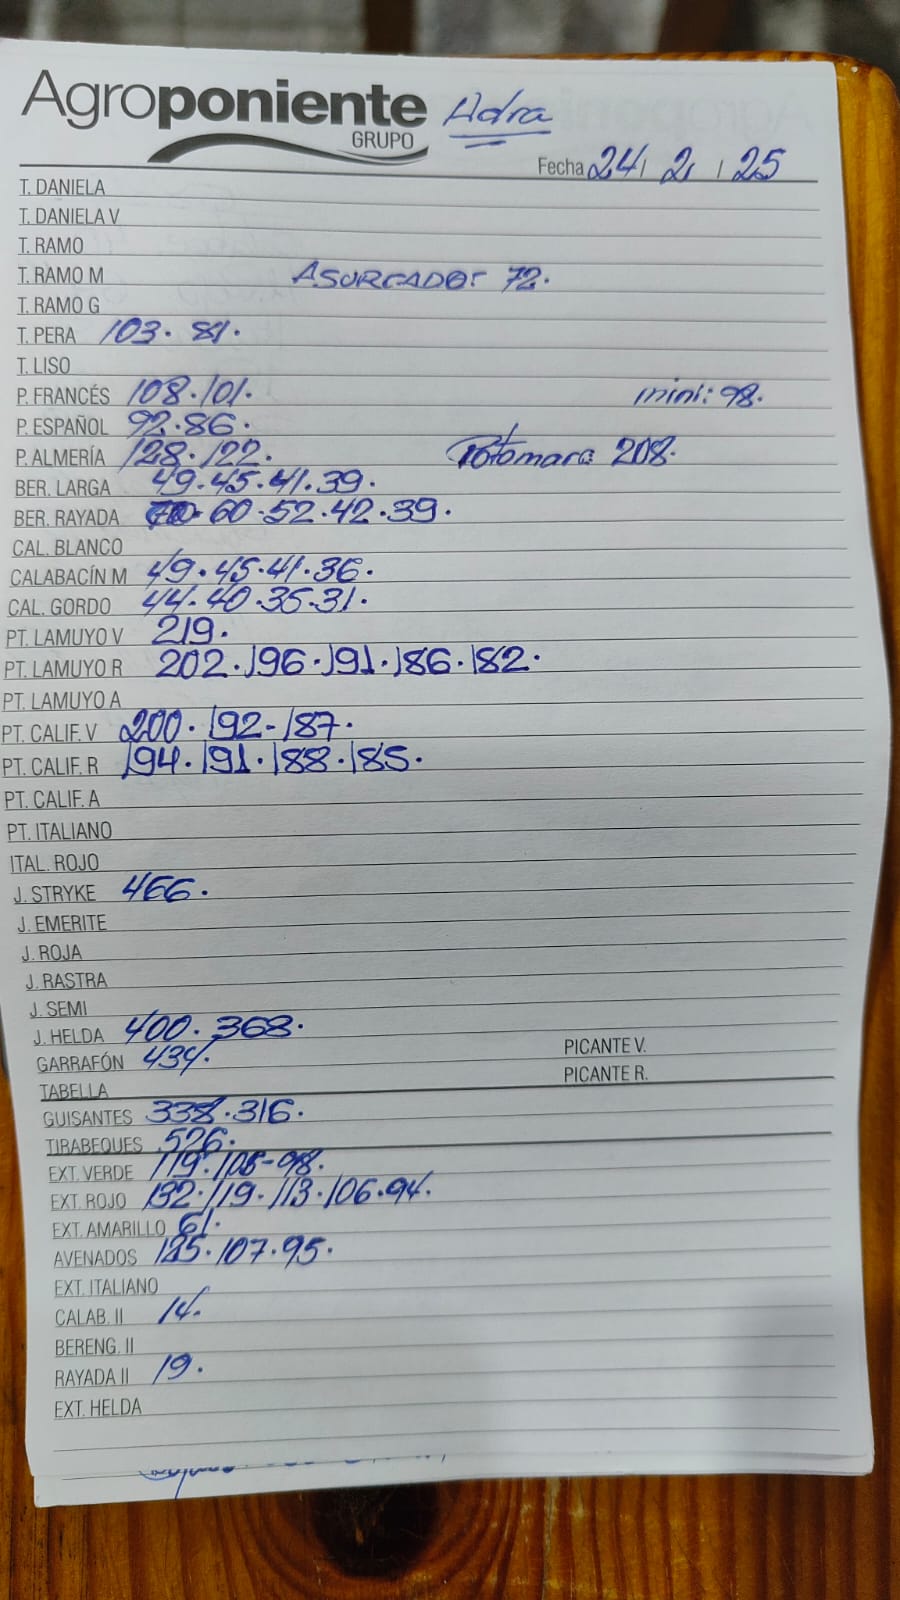 Agroponiente Adra
GRUPO
Fecha 24/ 2 / 25
T. DANIELA
T. DANIELA V
T. RAMO
T. RAMO M ASURCADO: 72.
T. RAMO G
T. PERA 103. 81.
T. LISO
P. FRANCÉS 108.101. mini: 98.
P. ESPAÑOL 92.86.
P. ALMERÍA 128.122. 208.
BER. LARGA 49.45.41.39.
BER. RAYADA 70.60.52.42.39.
CAL. BLANCO
CALABACÍN M 49.45.41.36.
CAL. GORDO 44.40.35.31.
PT. LAMUYO V 219.
PT. LAMUYO R 202.196.191.186.182.
PT. LAMUYO A
PT. CALIF. V 200.192-187.
PT. CALIF. R 194.191.188.185.
PT. CALIF. A
PT. ITALIANO
ITAL. ROJO
J. STRYKE 466.
J. EMERITE
J. ROJA
J. RASTRA
J. SEMI
J. HELDA 400.368.
GARRAFÓN 434. PICANTE V.
TABELLA PICANTE R.
GUISANTES 338.316.
TIRABEQUES 526.
EXT. VERDE 119.105-98.
EXT. ROJO 132.119.113.106.94.
EXT. AMARILLO 61.
AVENADOS 125.107.95.
EXT. ITALIANO
CALAB. II 14.
BERENG. II
RAYADA II 19.
EXT. HELDA